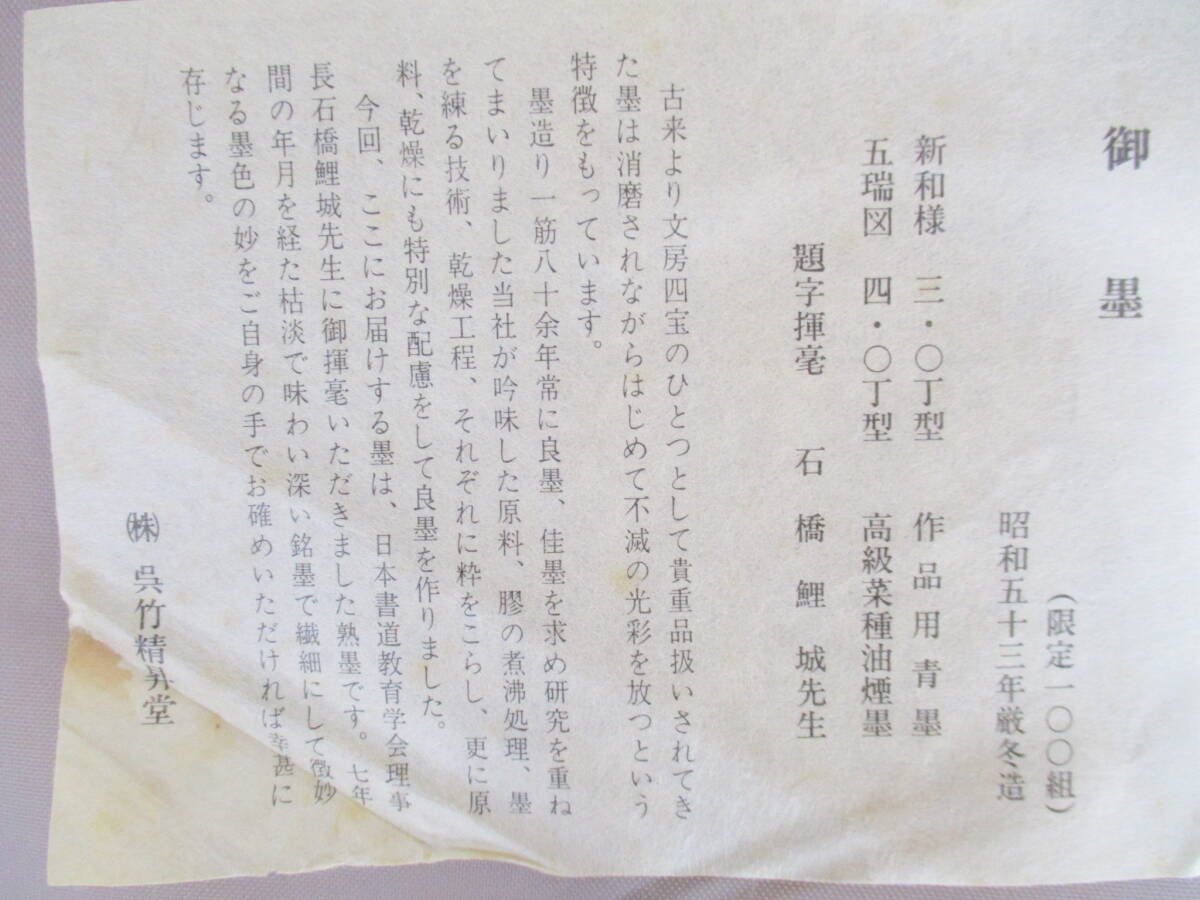 御墨
(限定一〇〇組)
昭和五十三年厳冬造
新和様 三・〇丁型 作品用青墨
五瑞図 四・〇丁型 高級菜種油煙墨
題字揮毫 石橋鯉城先生
古来より文房四宝のひとつとして貴重品扱いされてき
た墨は消磨されながらはじめて不滅の光彩を放つという
特徴をもっています。
墨造り一筋八十余年常に良墨、佳墨を求め研究を重ね
てまいりました当社が吟味した原料、膠の煮沸処理、墨
を練る技術、乾燥工程、それぞれに粋をこらし、更に原
料、乾燥にも特別な配慮をして良墨を作りました。
今回、ここにお届けする墨は、日本書道教育学会理事
長石橋鯉城先生に御揮毫いただきました熟墨です。七年
間の年月を経た枯淡で味わい深い銘墨で繊細にして微妙
なる墨色の妙をご自身の手でお確めいただければ幸甚に
存じます。
㈱呉竹精昇堂